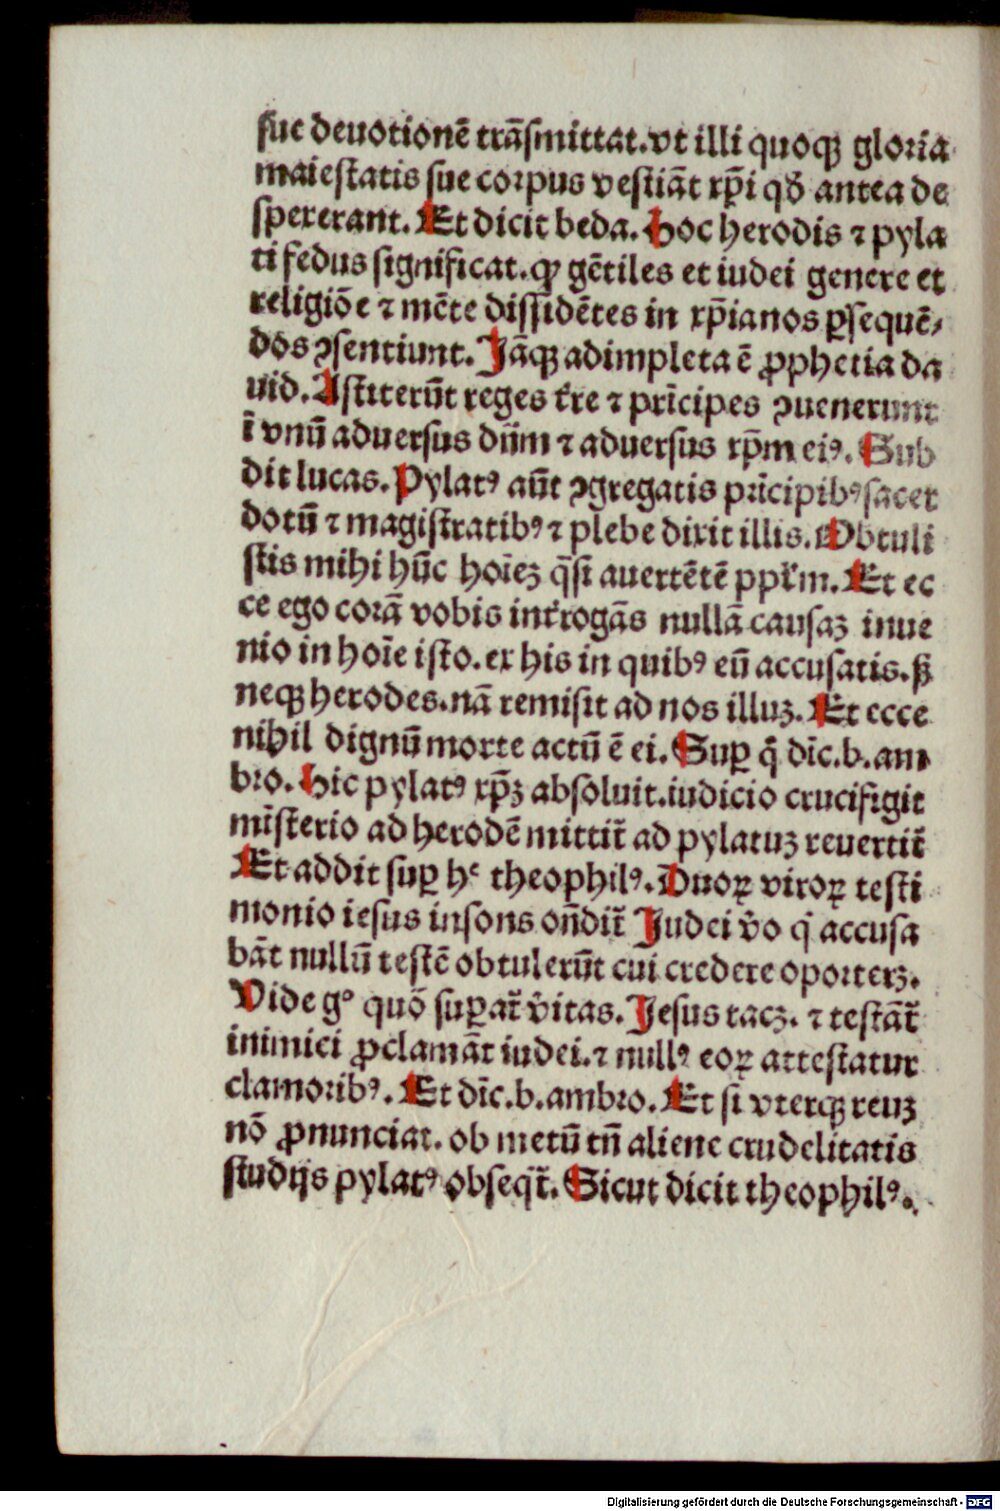 sue deuotionē trāsmittat.vt illi quoqꝫ gloria
maiestatis sue corpus vestiāt xp̄i qđ antea de
spexerant. Et dicit beda. Hoc herodis ⁊ pyla
ti fedus significat.ꝙ gētiles et iudei genere et
religiōe ⁊ mēte dissidētes in xp̄ianos ꝑsequē/
dos ꝯsentiunt. Jāqꝫ adimpleta ē ꝓphetia da
uid. Astiterūt reges t̄re ⁊ prīcipes ꝯuenerunt
ī vnū aduersus dn̄m ⁊ aduersus xp̄m eiꝰ. Sub
dit lucas. Pylatꝰ aūt ꝯgregatis prīcipibꝰ sacer
dotū ⁊ magistratibꝰ ⁊ plebe dixit illis. Obtuli
stis mihi hūc hoīeꝫ q̄si auertētē ppl̄m. Et ec
ce ego corā vobis int̄rogās nullā causaꝫ inue
nio in hoīe isto. ex his in quibꝰ eū accusatis. ẜ
neqꝫ herodes.nā remisit ad nos illuꝫ. Et ecce
nihil dignū morte actū ē ei. Suꝑ q̄ dīc.b.am
bro. Hic pylatꝰ xp̄ꝫ absoluit.iudicio crucifigit
mīsterio ad herodē mittit̄ ad pylatuꝫ reuertit̄
Et addit suꝑ hᶜ theophilꝰ. Duoꝝ viroꝝ testi
monio iesus insons on̄dit̄ Judei v̄o q̇ accusa
bāt nullū testē obtulerūt cui credere oporterꝫ.
Vide gᵒ quō suꝑat̄ v̄itas. Jesus tacꝫ. ⁊ testāt̄
inimici ꝓclamāt iudei.⁊ nullꝰ eoꝝ attestatur
clamoribꝰ. Et dīc.b.ambro. Et si vterqꝫ reuꝫ
nō ꝓnunciat. ob metū tn̄ aliene crudelitatis
studijs pylatꝰ obseqt̄. Sicut dicit theophilꝰ.
Digitalisierung gefördert durch die Deutsche Forschungsgemeinschaft - DFG